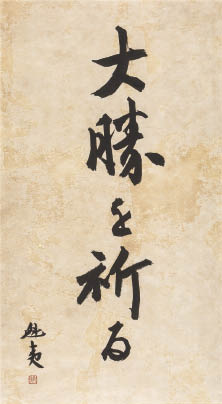 大勝を祈る